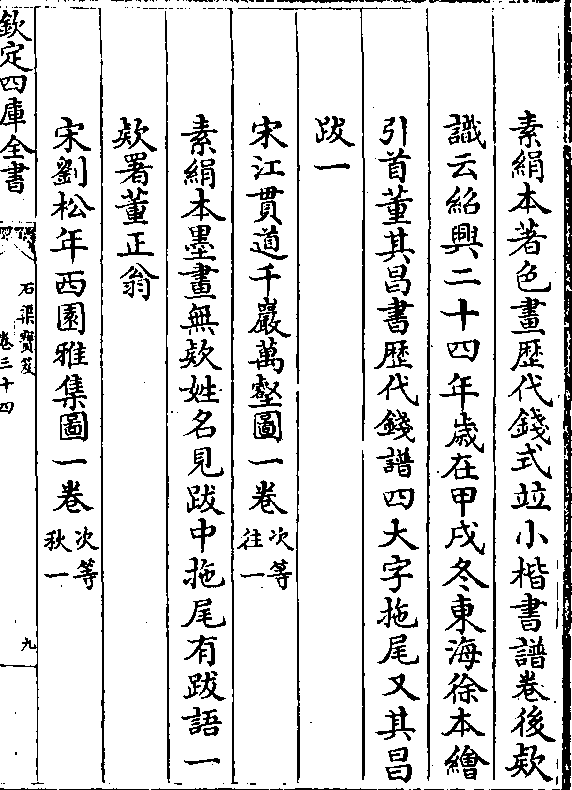 素絹本著色畫歴代錢式竝小楷書譜卷後欵
識云紹興二十四年歲在甲戌冬東海徐本繪
引首董其昌書歴代錢譜四大字拖尾又其昌
跋一
宋江貫道千巖萬壑圖一卷次等往一
素絹本墨畫無欵姓名見跋中拖尾有跋語一
欵署董正翁
宋劉松年西園雅集圖一卷次等秋一
欽定四庫全書
石渠寶笈
卷三十四
九